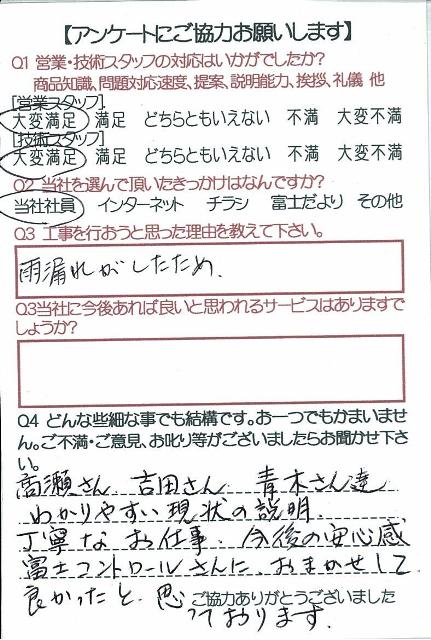 【アンケートにご協力お願いします】
Q1 営業・技術スタッフの対応はいかがでしたか?
商品知識、問題対応速度、提案、説明能力、挨拶、礼儀 他
[営業スタッフ]
大変満足 満足 どちらともいえない 不満 大変不満
[技術スタッフ]
大変満足 満足 どちらともいえない 不満 大変不満
Q2 当社を選んで頂いたきっかけはなんですか?
当社社員 インターネット チラシ 富士だより その他
Q3 工事を行おうと思った理由を教えて下さい。
雨漏れがしたため、
Q3当社に今後あれば良いと思われるサービスはありますで
しょうか?
Q4 どんな些細な事でも結構です。お一つでもかまいませ
ん。ご不満・ご意見、お叱り等がございましたらお聞かせ下さ
い。
高瀬さん 吉田さん 青木さん達
わかりやすい現状の説明
丁寧なお仕事、今後の安心感
富士コントロールさんに、おまかせして
良かったと 思
ご協力ありがとうございました
っております。